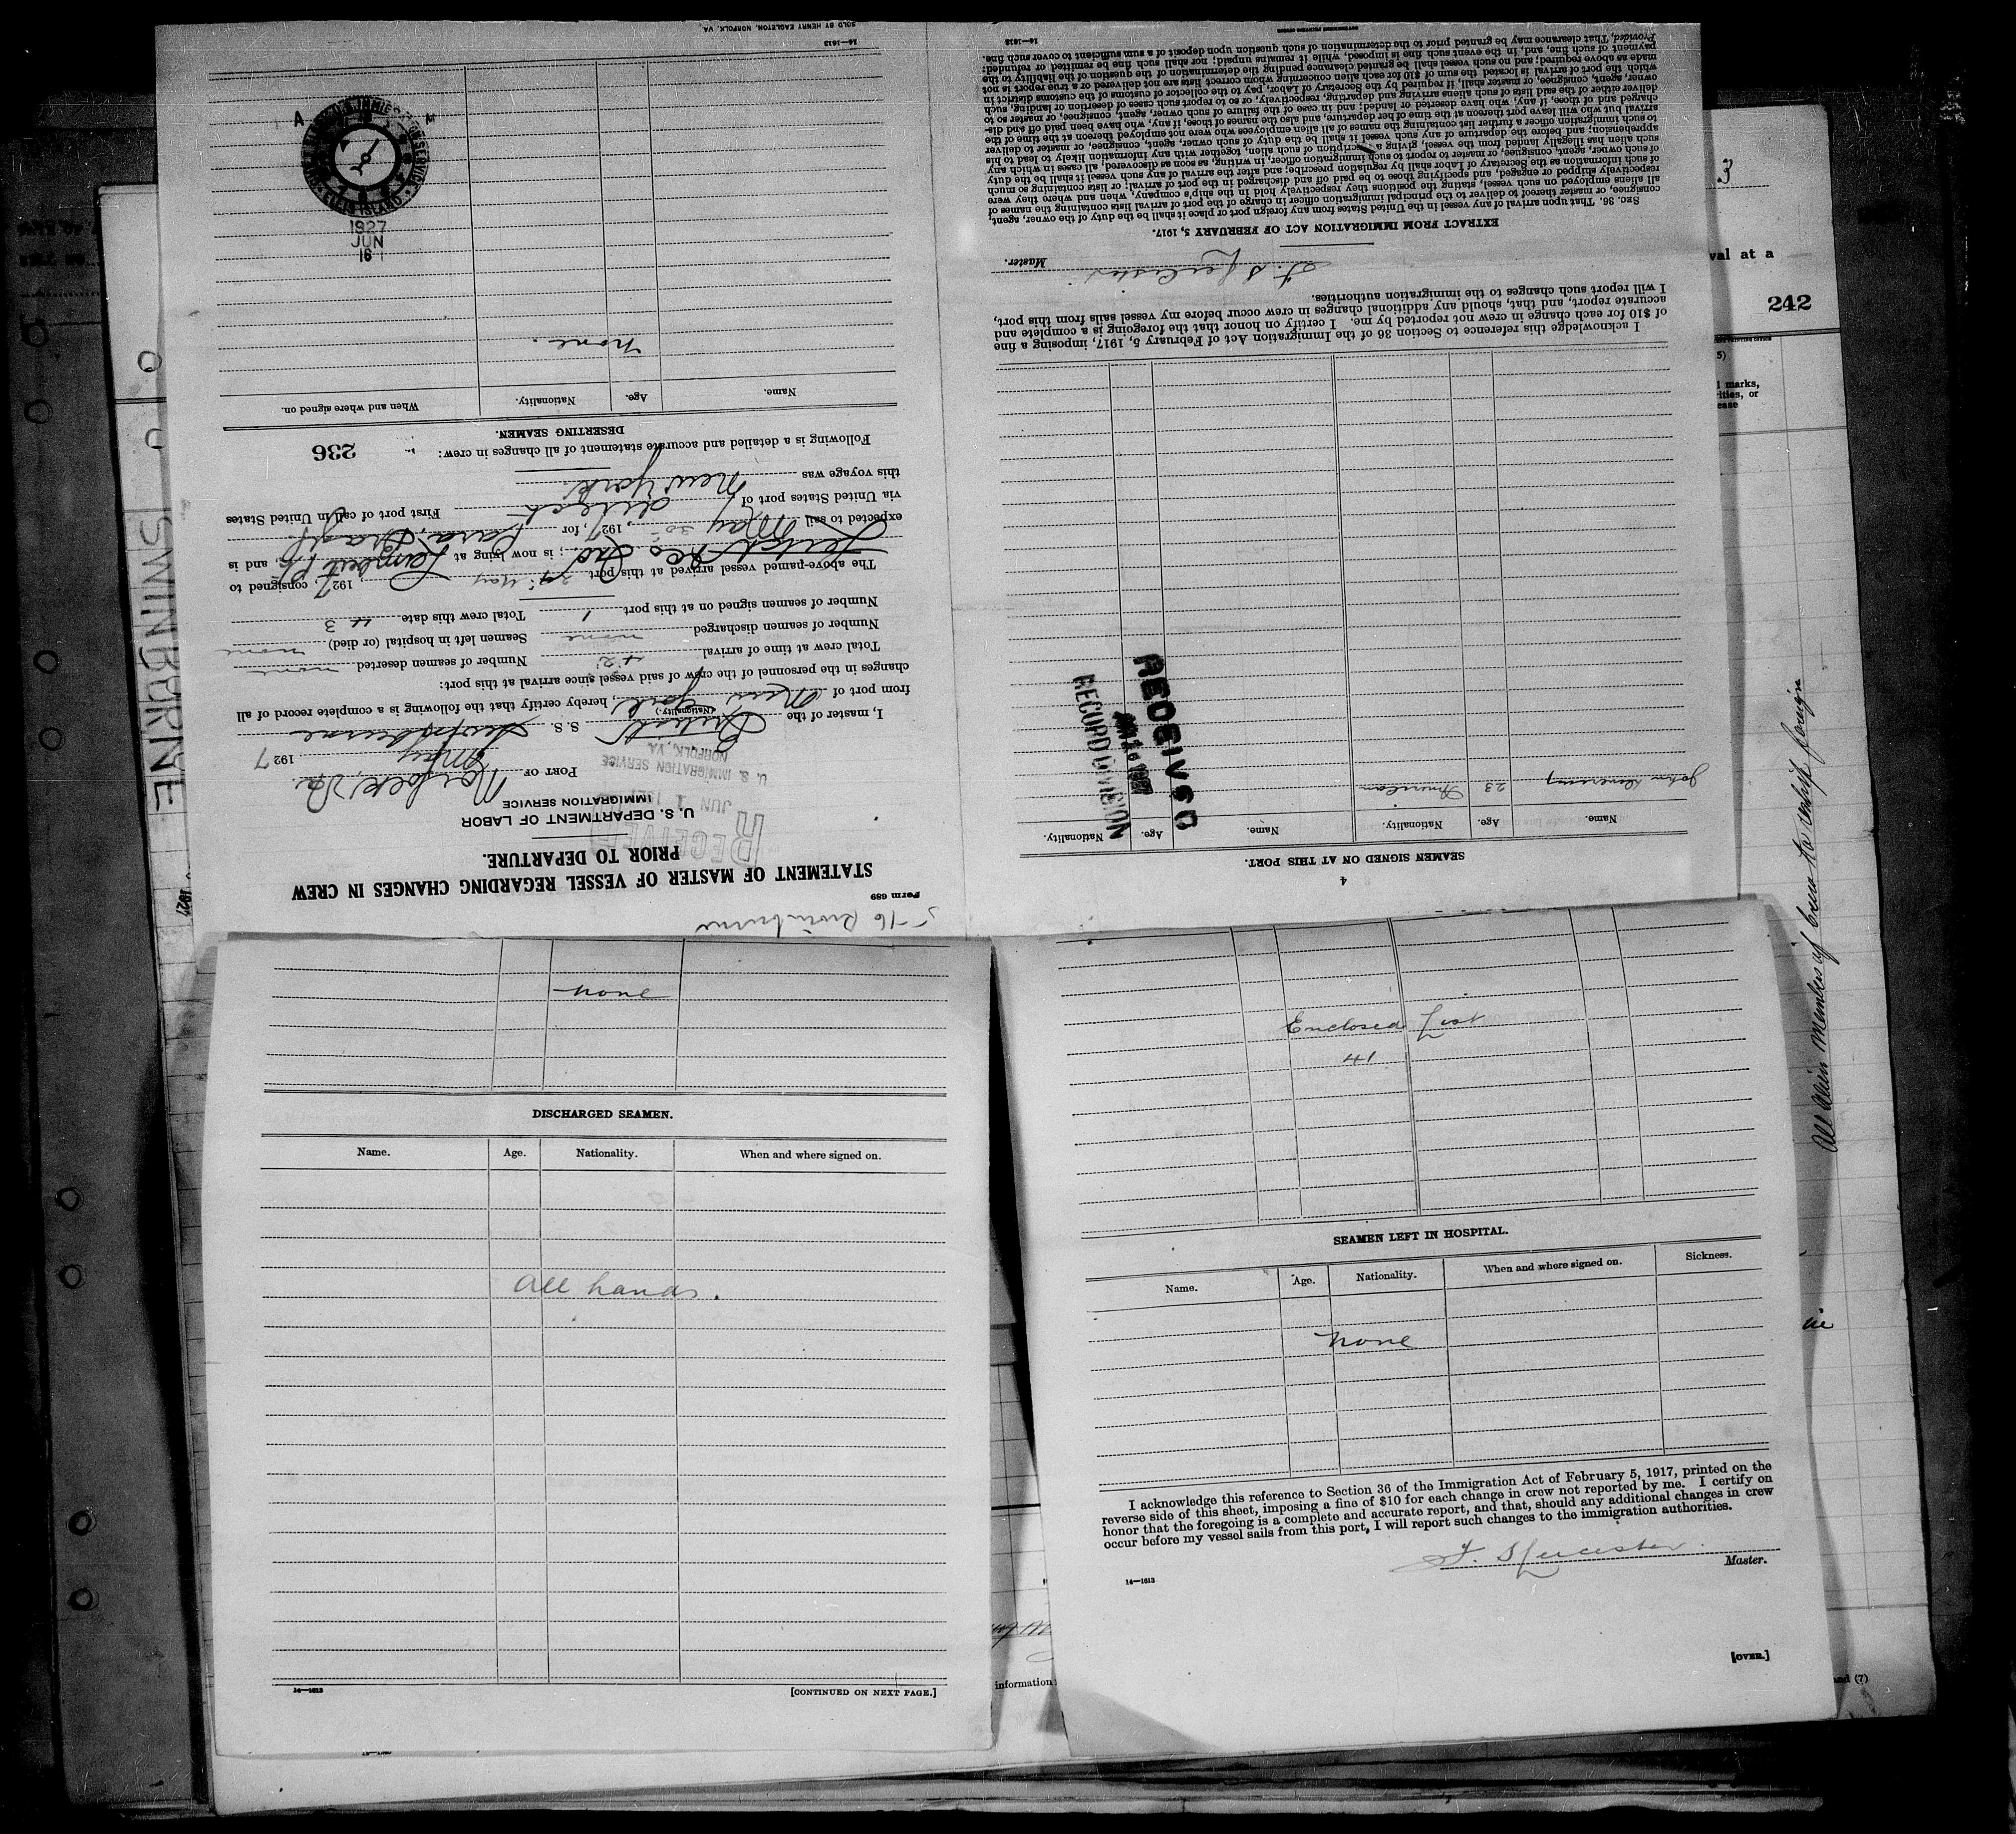 Form 689
STATEMENT OF MASTER OF VESSEL REGARDING CHANGES IN CREW
PRIOR TO DEPARTURE.
U. S. DEPARTMENT OF LABOR
IMMIGRATION SERVICE
RECEIVED
JUN 1 1927
U. S. IMMIGRATION SERVICE
NORFOLK, VA.
PORT OF Norfolk, Va.
May 1927
I, master of the British S. S. Swinburne
(Nationality.)
from port of New York, hereby certify that the following is a complete record of all
changes in the personnel of the crew of said vessel since arrival at this port:
Total crew at time of arrival 42 Number of seamen deserted none
Number of seamen discharged none Seamen left in hospital (or died) none
Number of seamen signed on at this port 1 Total crew this date 43
The above-named vessel arrived at this port May 1927 consigned to
; is now lying at Lambert Pt. and is
expected to sail May 30, 1927, for Para, Brazil
via United States port of direct First port of call in United States
this voyage was New York.
Following is a detailed and accurate statement of all changes in crew:
236
DESERTING SEAMEN.
Name. Age. Nationality. When and where signed on.
None.
U.S. IMMIGRATION SERVICE
ELLIS ISLAND
1927
JUN
16
A M
14—1613
SOLD BY HENRY EAGLETON, NORFOLK, VA.
4
SEAMEN SIGNED ON AT THIS PORT.
Name. Age. Nationality. Name. Age. Nationality.
John 23 American
RECEIVED
JUN 16 1927
RECORD DIVISION
I acknowledge this reference to Section 36 of the Immigration Act of February 5, 1917, imposing a fine
of $10 for each change in crew not reported by me. I certify on honor that the foregoing is a complete and
accurate report, and that, should any additional changes in crew occur before my vessel sails from this port,
I will report such changes to the immigration authorities.
Master.
EXTRACT FROM IMMIGRATION ACT OF FEBRUARY 5, 1917.
SEC. 36. That upon arrival of any vessel in the United States from any foreign port or place it shall be the duty of the owner, agent,
consignee, or master thereof to deliver to the principal immigration officer in charge of the port of arrival lists containing the names of
all aliens employed on such vessel, stating the positions they respectively hold in the ship's company, when and where they were
respectively shipped or engaged, and specifying those to be paid off and discharged in the port of arrival; or lists containing so much
of such information as the Secretary of Labor shall by regulation prescribe; and after the arrival of any such vessel it shall be the duty
of such owner, agent, consignee, or master to report to such immigration officer, in writing, as soon as discovered, all cases in which any
such alien has illegally landed from the vessel, giving a description of such alien, together with any information likely to lead to his
apprehension; and before the departure of any such vessel it shall be the duty of such owner, agent, consignee, or master to deliver
to such immigration officer a further list containing the names of all alien employees who were not employed thereon at the time of the
arrival but who will leave port thereon at the time of her departure, and also the names of those, if any, who have been paid off and dis-
charged and of those, if any, who have deserted or landed; and in case of the failure of such owner, agent, consignee, or master so to
deliver either of the said lists of such aliens arriving and departing, respectively, or so to report such cases of desertion or landing, such
owner, agent, consignee, or master shall, if required by the Secretary of Labor, pay to the collector of customs of the customs district in
which the port of arrival is located the sum of $10 for each alien concerning whom correct lists are not delivered or a true report is not
made as above required; and no such vessel shall be granted clearance pending the determination of the question of the liability to the
payment of such fine, and, in the event such fine is imposed, while it remains unpaid; nor shall such fine be remitted or refunded:
Provided, That clearance may be granted prior to the determination of such question upon deposit of a sum sufficient to cover such fine.
14—1613
none
DISCHARGED SEAMEN.
Name. Age. Nationality. When and where signed on.
All hands.
14—1613
[CONTINUED ON NEXT PAGE.]
Enclosed List
41
SEAMEN LEFT IN HOSPITAL.
Name. Age. Nationality. When and where signed on. Sickness.
None
I acknowledge this reference to Section 36 of the Immigration Act of February 5, 1917, printed on the
reverse side of this sheet, imposing a fine of $10 for each change in crew not reported by me. I certify on
honor that the foregoing is a complete and accurate report, and that, should any additional changes in crew
occur before my vessel sails from this port, I will report such changes to the immigration authorities.
Master.
14—1613
[OVER.]
SWINBURNE
1927
3
val at a
242
5)
marks,
ities, or
ease
All alien members of crew to reship foreign
information
and (7)